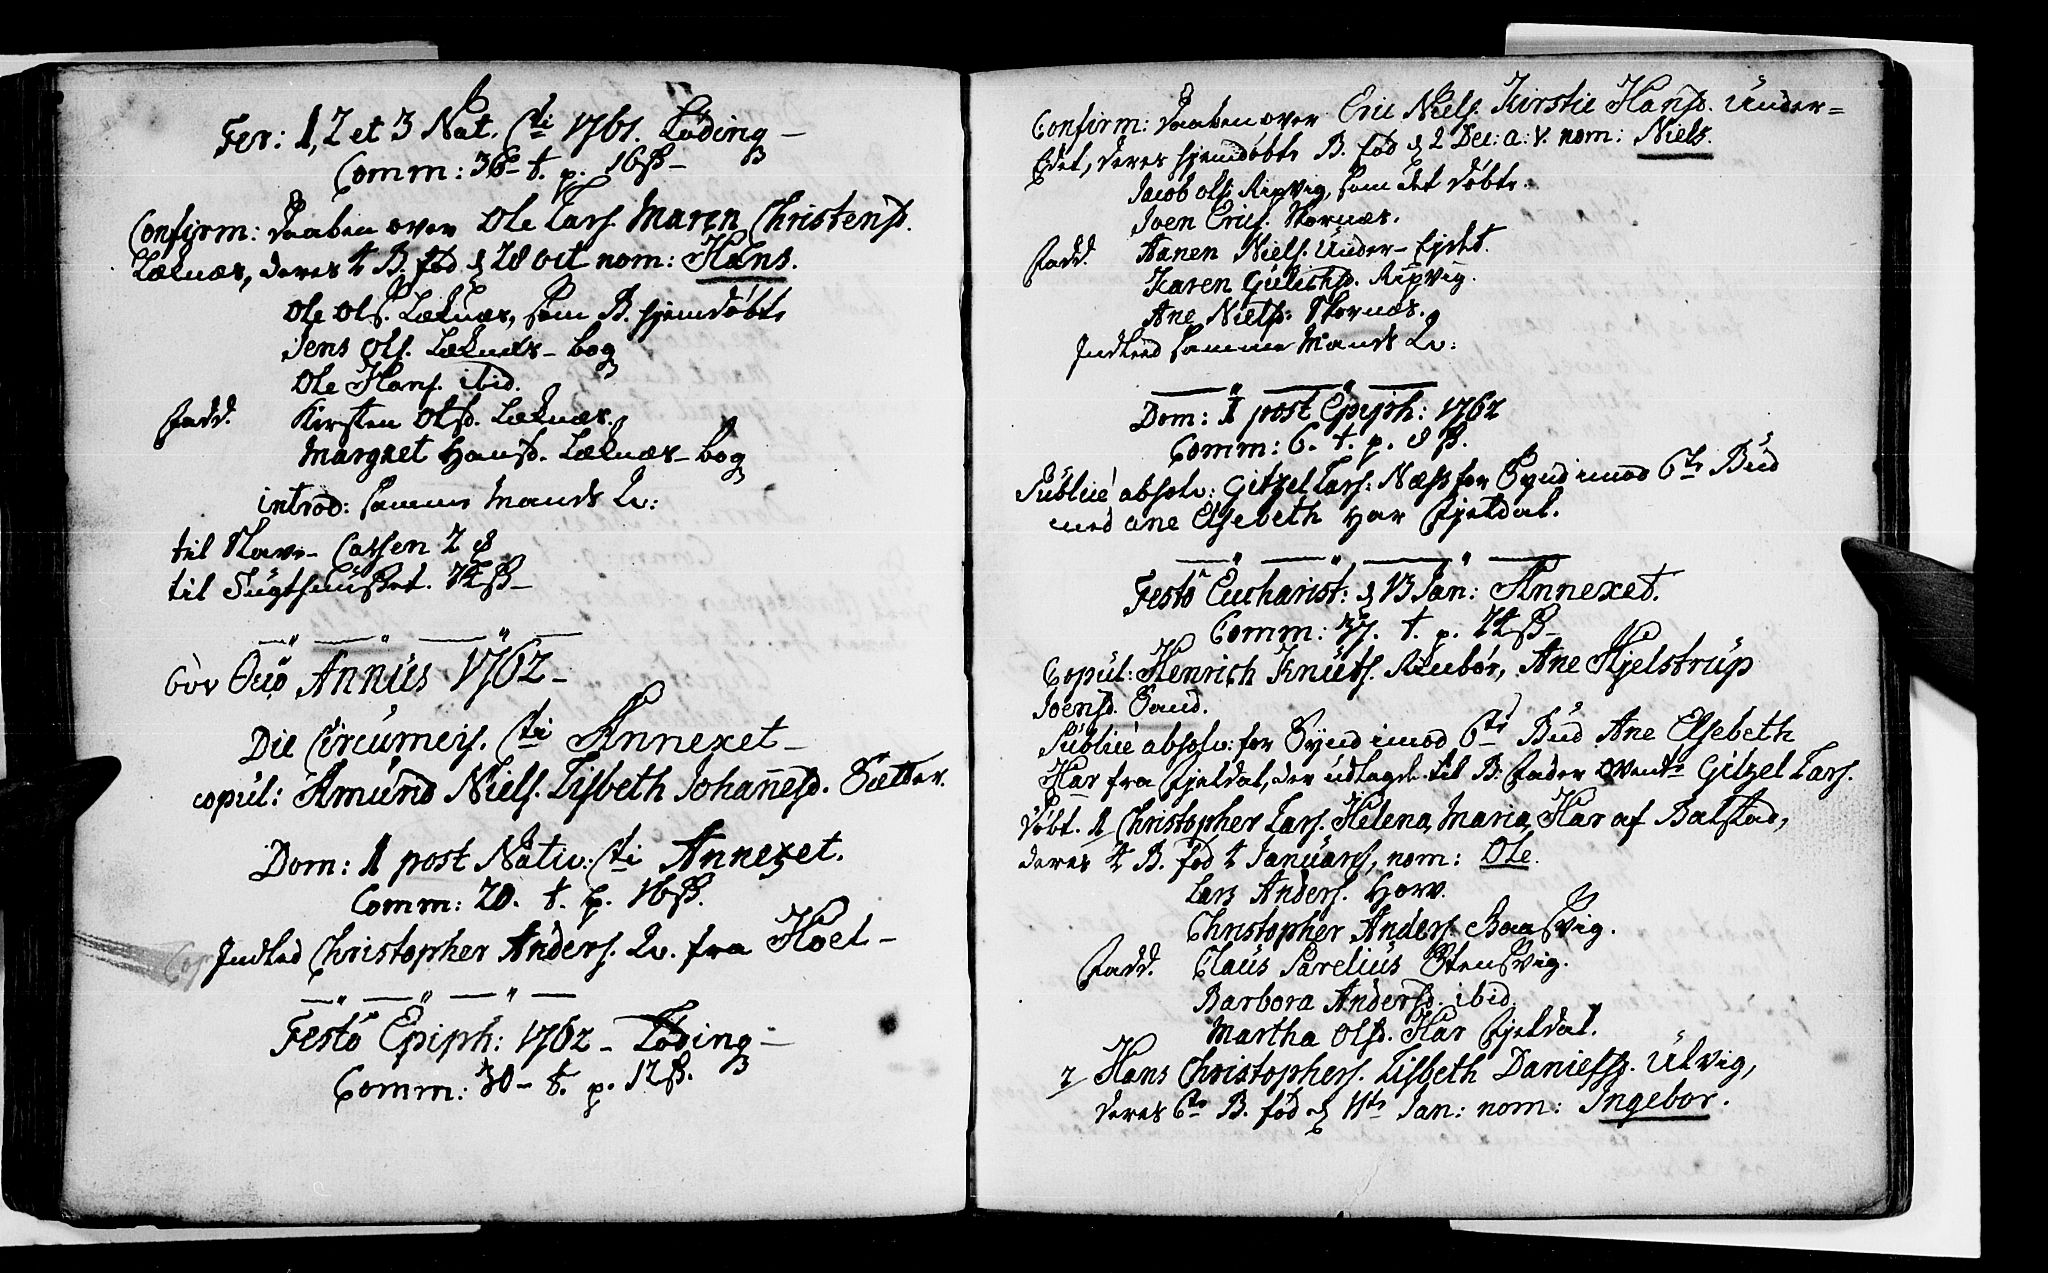 Fer: 1, 2 et 3 Nat. Cti 1761. Løding —
Comm: 36 – t. p. 16ß –
Confirm: Daaben over Ole Lars. Maren Christensd.
Læknæs, deres 4 B. fød d 28 oct nom: Hans.
Ole Ols. Læknæs, som B. hjemdøbte
Jens Ols. Læknæs – bog
Ole Hans. ibid.
Fadd. Kirsten Olsd. Læknæs.
Margret Hansd. Læknæs – bog
introd: samme Mands Qv:
til Slave – Cassen 2 ß
til Tugthuuset. 24ß –
συν Θεῷ Annus 1762 –
Die Circumcis. Cti Annexet –
copul: Amund Niels. Lisbeth Johannesd. Sætter.
Dom: 1 post Nativ: Cti Annexet.
Comm: 20. t. p. 16ß.
Indled Christopher Anders. Qv. fra Hoel –
Festo Epiph: 1762 – Løding –
Comm: 30 – t. p. 12ß.
Confirm: Daaben over Eric Niels. Kirstie Hansd. Under –
Ejdet, deres hjemdøbte B. fød d 2 Dec: a: v. nom: Niels.
Jacob Ols. Ripvig, som det døbte.
Joen Erics. Stornæs.
Fadd. Aanen Niels. Under – Ejdet.
Karen Gulichsd. Ripvig.
Ane Nielsd: Stornæs.
Indleed samme Mands Qv:
Dom: 1 post Epiph: 1762
Comm: 6. t. p. 8 ß.
Publicé absolv: Gitzel Lars: Næss for Synd imod 6te Bud
med Ane Elsebeth Har Fjeldal.
Festo Eucharist: d 13 Jan: Annexet.
Comm: 37. t. p. 24ß –
Copul: Henrich Knuts. Reubør, Ane Hjelstrup
Joensd. Sand.
Publicé absolv: for Synd imod 6te Bud Ane Elsebeth
Har fra Fjeldal, der udlagde til B. Fader Gitzel Lars.
Døbt. 1 Christopher Lars. Helena Maria Har af Balstad,
deres 4 B. fød 4 Januar, nom: Ole.
Lars Anders. Horv.
Christopher Anders. Baasvig.
Fadd. Claus Parelius Stensvig.
Barbora Andersd. ibid.
Martha Olsd. Har Fjeldal.
2/ Hans Christophers. Lisbeth Danielsd. Ulvig,
deres 6te B. fød d 11te Jan: nom: Ingebor.